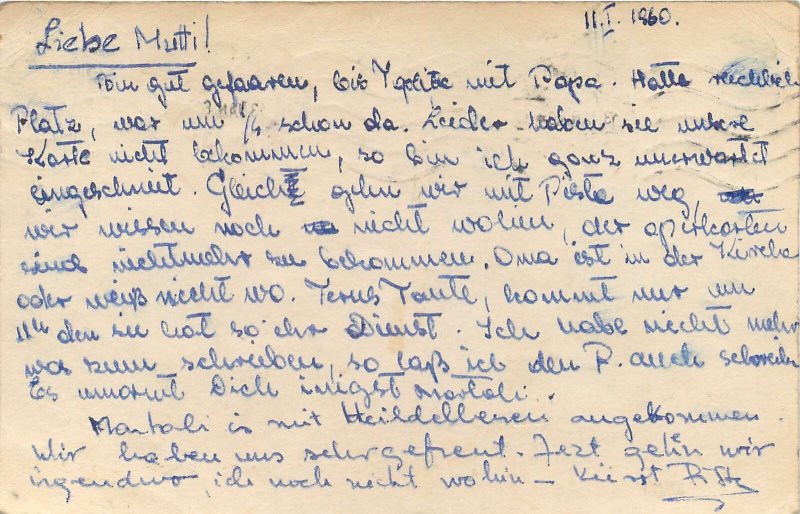 11.I. 1960.
Liebe Mutti!
Bin gut gefaaren, bis mit Papa. Hatte reichlich
Platz, war um schon da. Leider haben sie unsere
Karte nicht bekommen, so bin ich ganz unerwartet
eingeschneit. Gleich gehn wir mit Pista weg,
wir wiesen noch nicht wohin, der operkarten
sind nichtmehr zu bekommen. Oma ist in der Kirche
oder weiß nicht wo. Tante, kommt nur um
11h den sie hat so ihr Dienst. Ich habe nicht mehr
was zum schreiben, so laß ich den P. auch schreiben
Es umarmt Dich inigst
is mit angekommen.
Wir haben uns sehr gefreut. Jezt gehn wir
irgendwo, ich noch nicht wohin – Küsst